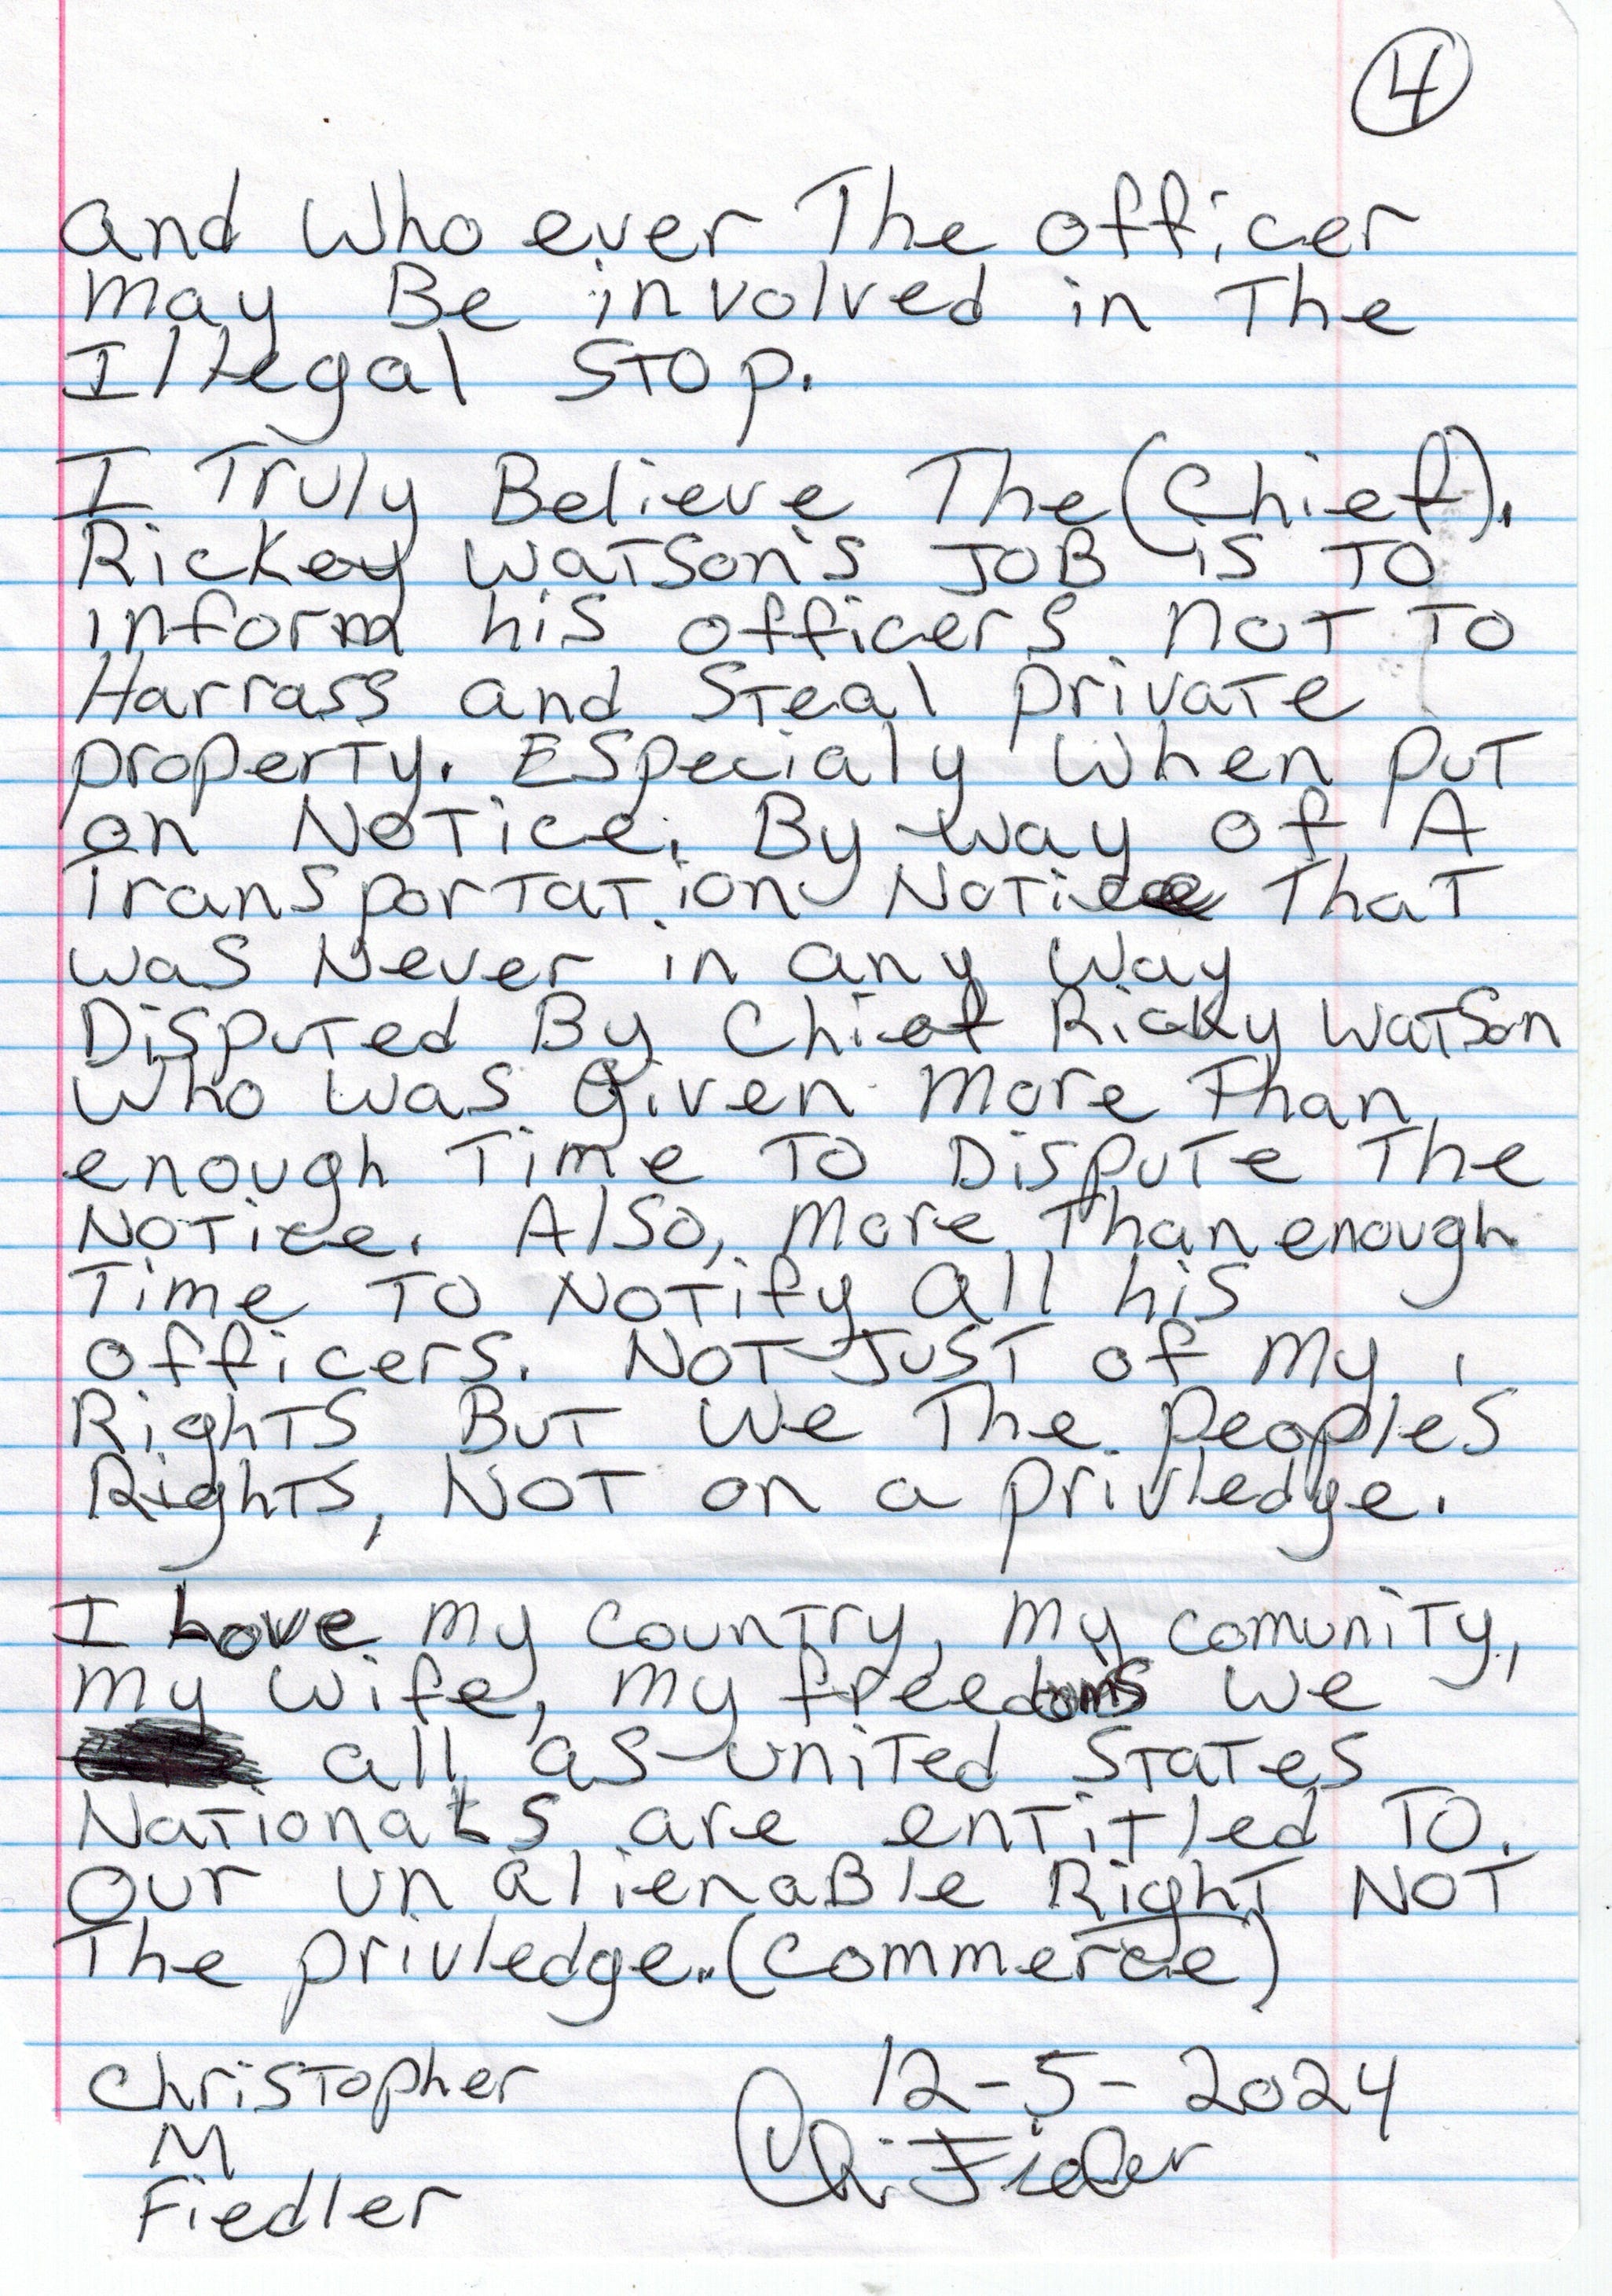 4
and Who ever The officer
may Be involved in The
Illegal STOp.
I Truly Believe The (Chief).
Rickey WaTSon's JOB is TO
inform his officers NOT TO
Harrass and STeal privaTe
properTy. ESpecialy When puT
on NoTice. By way of A
TransporTaTion NoTice ThaT
was Never in any Way
DispuTed By Chief Ricky WaTSon
Who Was Given More Than
enough Time To DispuTe The
NoTice. AlSo, More Than enough
Time TO NoTify all his
officers. NoT JusT of My
RighTS BuT We The peoples
RighTS, NOT on a privledge.
I Love my counTry, my comuniTy,
my Wife, my freedoms We
all as uniTed STaTes
NaTionals are enTiTled TO.
Our unalienaBle RighT NOT
The privledge..(commerce)
ChrisTopher 12-5-2024
M
Fiedler